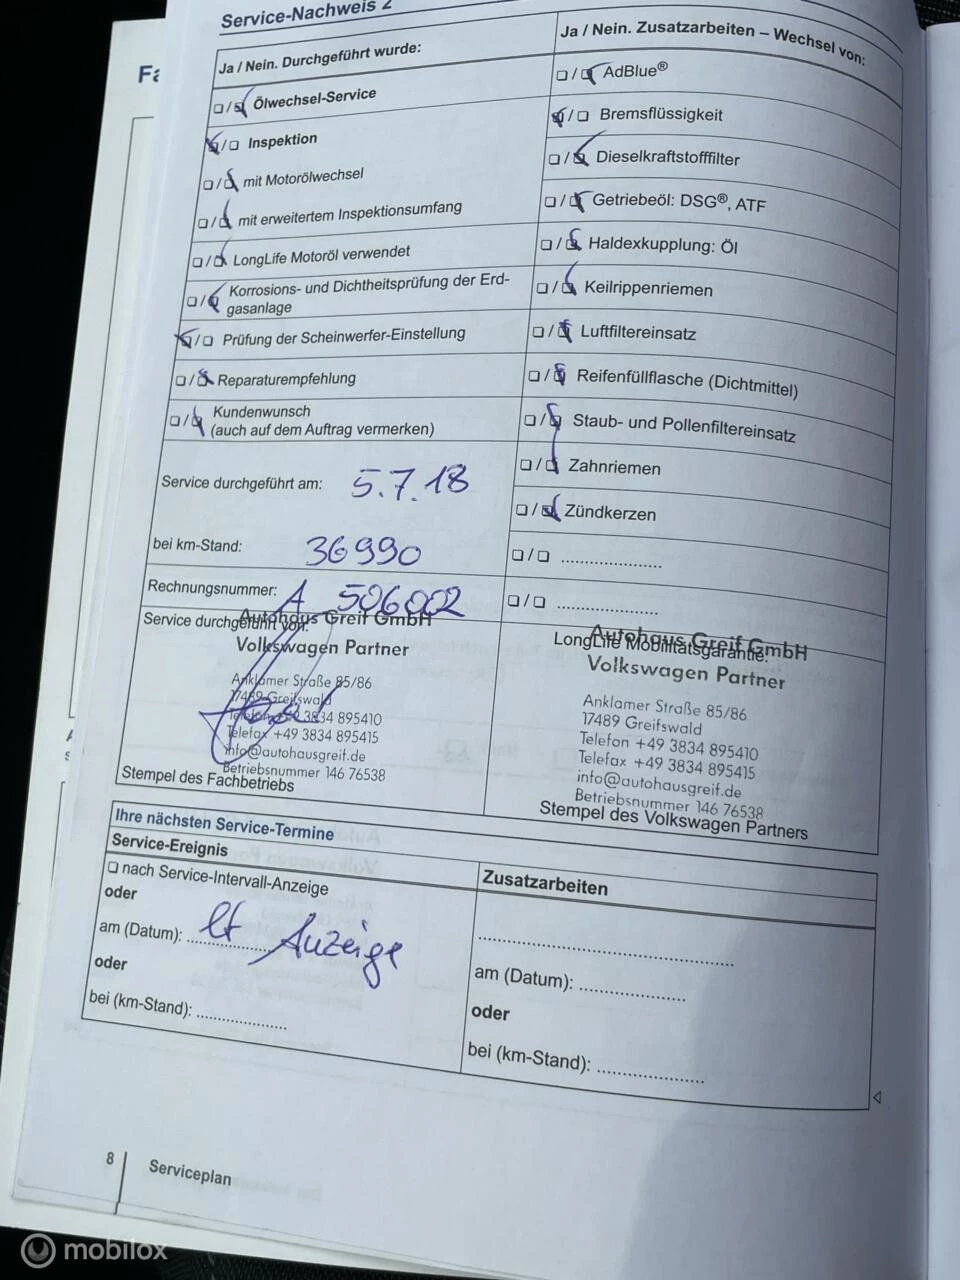 Service-Nachweis 2
Fa
Ja / Nein. Durchgeführt wurde:
Ölwechsel-Service
Inspektion
mit Motorölwechsel
mit erweitertem Inspektionsumfang
LongLife Motoröl verwendet
Korrosions- und Dichtheitsprüfung der Erd-
gasanlage
Prüfung der Scheinwerfer-Einstellung
Reparaturempfehlung
Kundenwunsch
(auch auf dem Auftrag vermerken)
Service durchgeführt am: 5.7.18
bei km-Stand: 36990
Rechnungsnummer: A 506002
Service durchgeführt von:
Autohaus Greif GmbH
Volkswagen Partner
Anklamer Straße 85/86
17489 Greifswald
Telefon +49 3834 895410
Telefax +49 3834 895415
info@autohausgreif.de
Betriebsnummer 146 76538
Stempel des Fachbetriebs
Ja / Nein. Zusatzarbeiten – Wechsel von:
AdBlue®
Bremsflüssigkeit
Dieselkraftstofffilter
Getriebeöl: DSG®, ATF
Haldexkupplung: Öl
Keilrippenriemen
Luftfiltereinsatz
Reifenfüllflasche (Dichtmittel)
Staub- und Pollenfiltereinsatz
Zahnriemen
Zündkerzen
LongLife Mobilitätsgarantie:
Autohaus Greif GmbH
Volkswagen Partner
Anklamer Straße 85/86
17489 Greifswald
Telefon +49 3834 895410
Telefax +49 3834 895415
info@autohausgreif.de
Betriebsnummer 146 76538
Stempel des Volkswagen Partners
Ihre nächsten Service-Termine
Service-Ereignis
nach Service-Intervall-Anzeige
oder
am (Datum): lt Anzeige
oder
bei (km-Stand):
Zusatzarbeiten
am (Datum):
oder
bei (km-Stand):
8 Serviceplan
mobilox